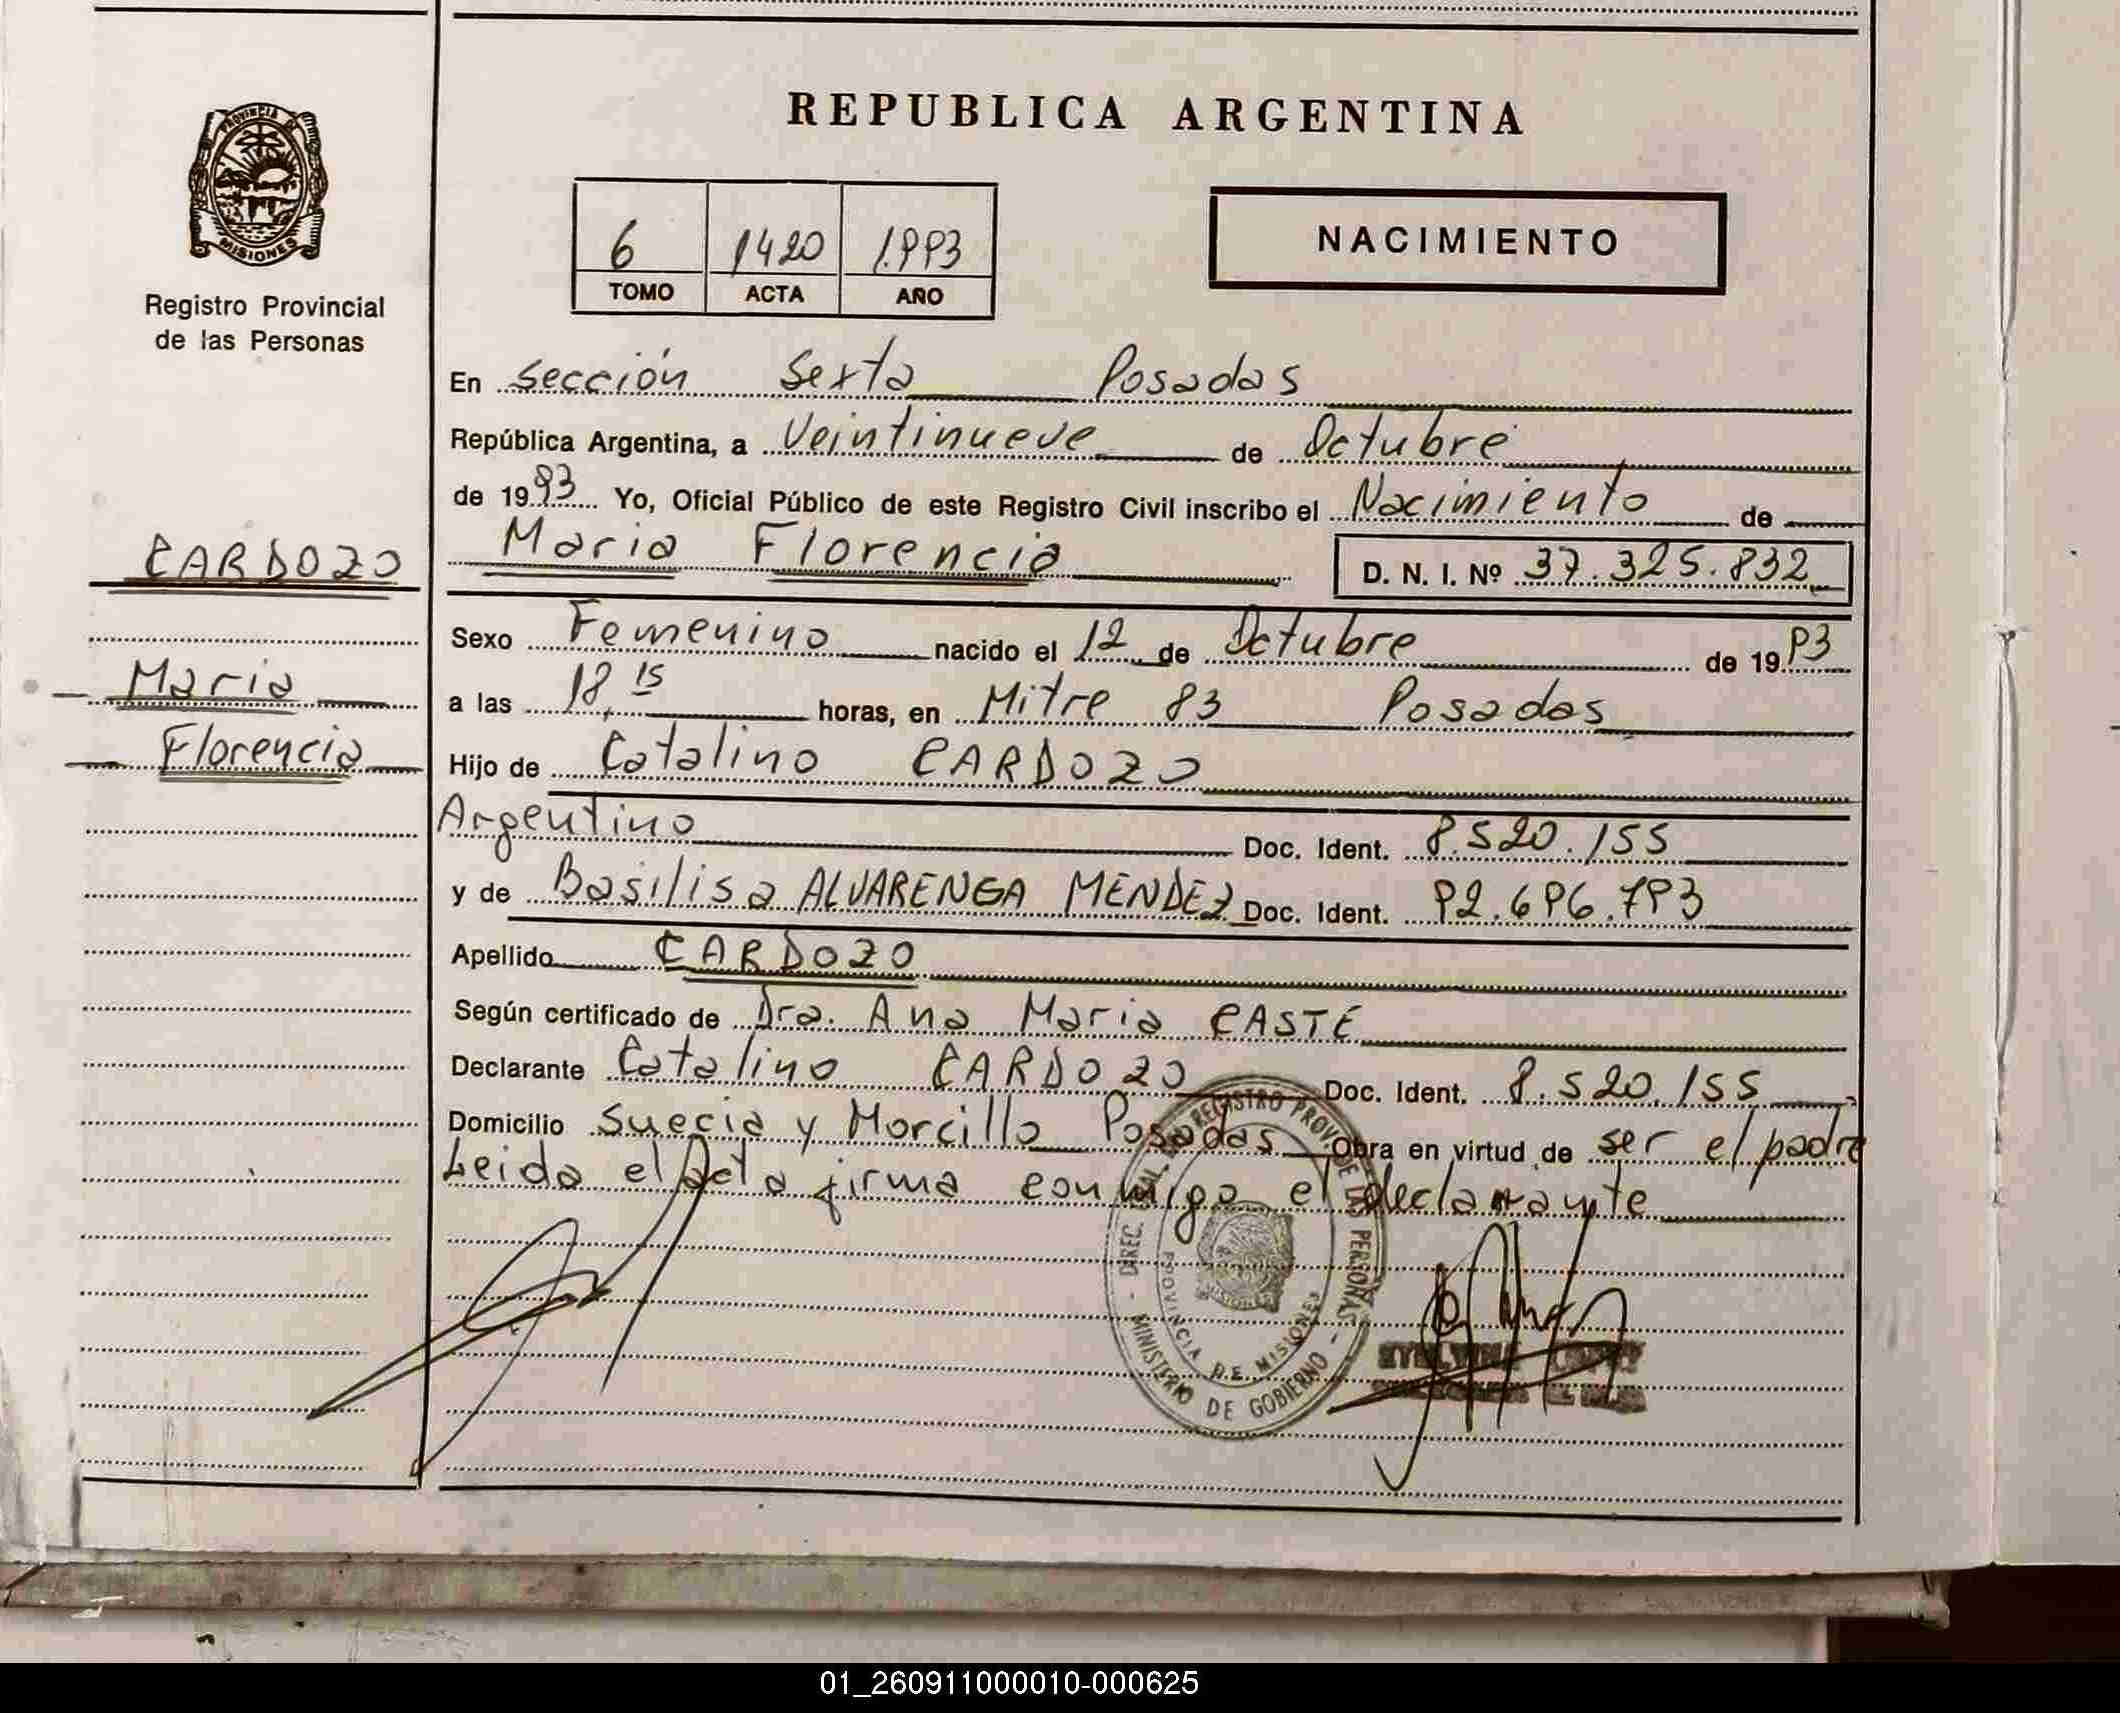 REPUBLICA ARGENTINA
PROVINCIA DE
MISIONES
Registro Provincial
de las Personas
6 1420 1.993
TOMO ACTA AÑO
NACIMIENTO
En Sección Sexta Posadas
República Argentina, a Veintinueve de Octubre
de 1993 Yo, Oficial Público de este Registro Civil inscribo el Nacimiento de
CARDOZO
Maria Florencia D. N. I. Nº 37.325.832
Sexo Femenino nacido el 12 de Octubre de 1993
Maria
a las 18,15 horas, en Mitre 83 Posadas
Florencia
Hijo de Catalino CARDOZO
Argentino Doc. Ident. 8.520.155
y de Basilisa ALVARENGA MENDEZ Doc. Ident. 92.696.793
Apellido CARDOZO
Según certificado de Dra. Ana Maria CASTE
Declarante Catalino CARDOZO Doc. Ident. 8.520.155
Domicilio Suecia y Morcillo Posadas Obra en virtud de ser el padre
Leida el Acta firma conmigo el declarante
DIREC. GRAL. DEL REGISTRO PROV. DE LAS PERSONAS
PROVINCIA DE MISIONES
- MINISTERIO DE GOBIERNO -
01_260911000010-000625